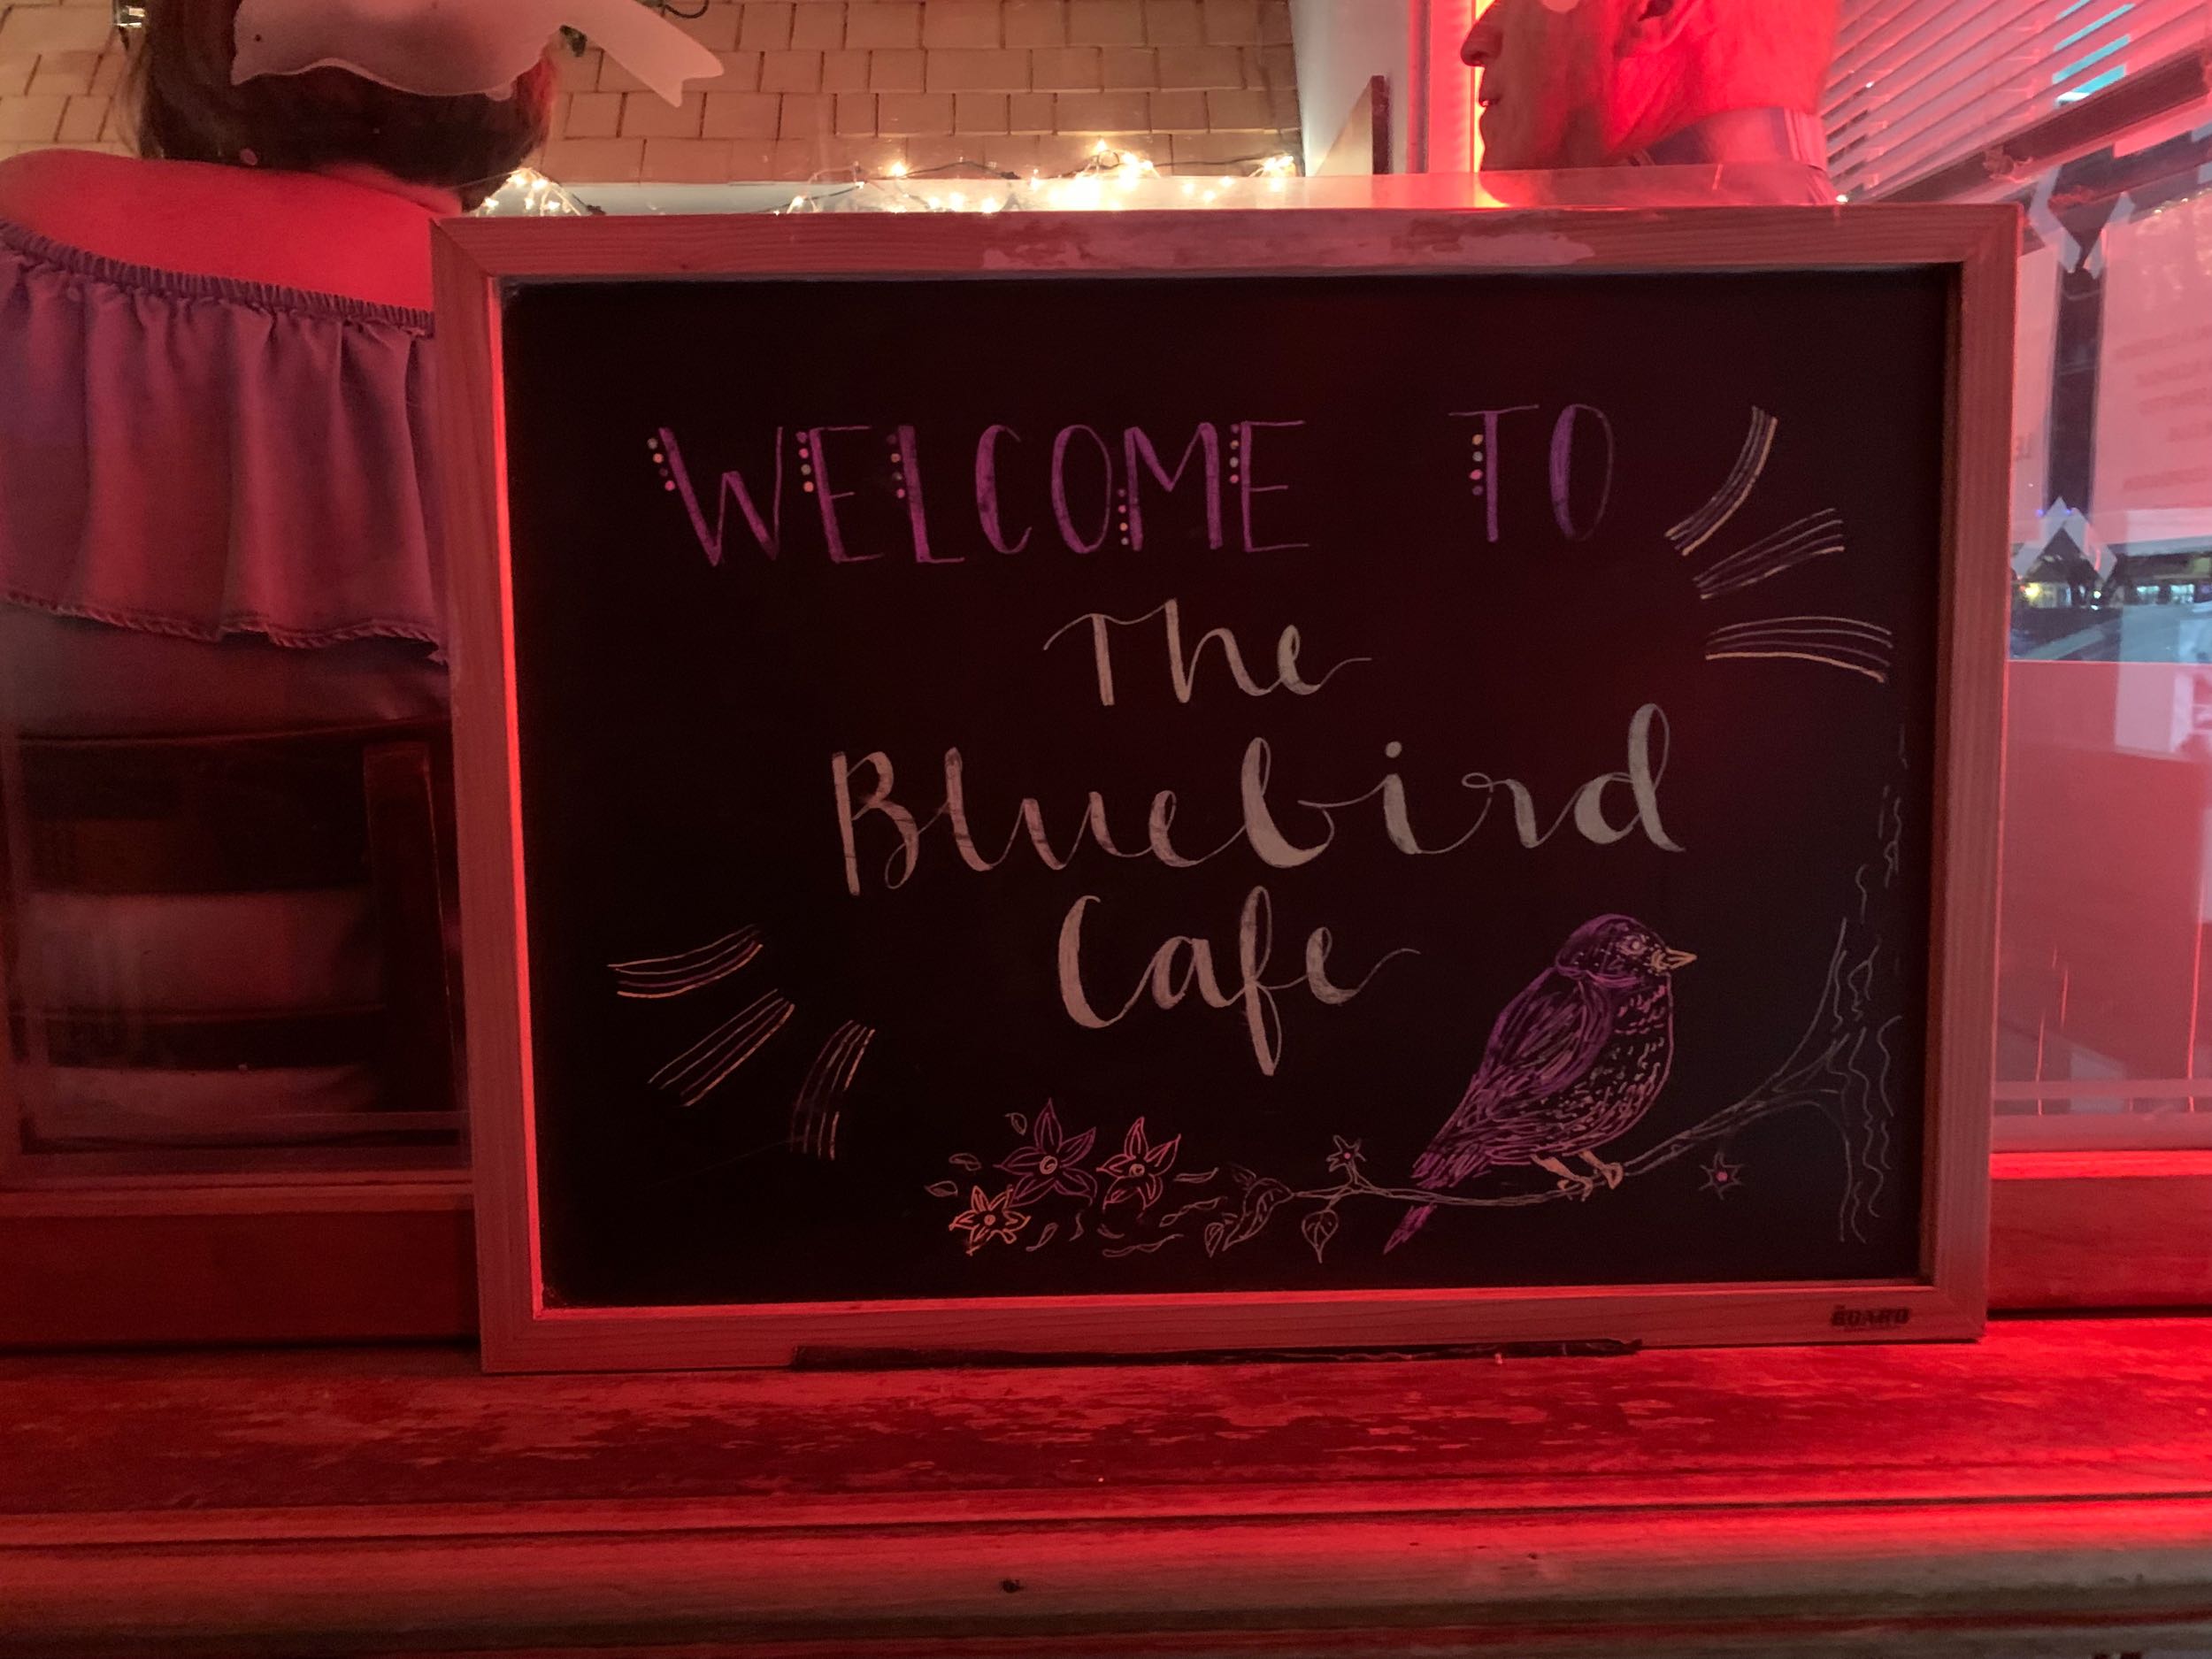 WELCOME TO
The
Bluebird
Cafe
BOARD